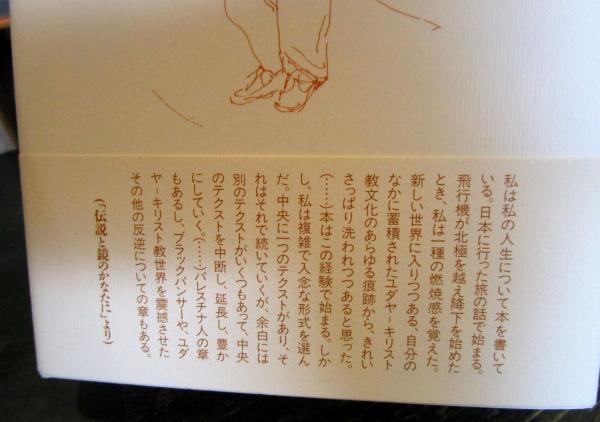 私は私の人生について本を書いて
いる。日本に行った旅の話で始まる。
飛行機が北極を越え降下を始めた
とき、私は一種の燃焼感を覚えた。
新しい世界に入りつつある、自分の
なかに蓄積されたユダヤ-キリスト
教文化のあらゆる痕跡から、きれい
さっぱり洗われつつあると思った。
(……)本はこの経験で始まる。しか
し、私は複雑で入念な形式を選ん
だ。中央に一つのテクストがあり、そ
れはそれで続いていくが、余白には
別のテクストがいくつもあって、中央
のテクストを中断し、延長し、豊か
にしていく。(……)パレスチナ人の章
もあるし、ブラックパンサーや、ユダ
ヤ-キリスト教世界を震撼させた
その他の反逆についての章もある。
(「伝説と鏡のかなたに」より)